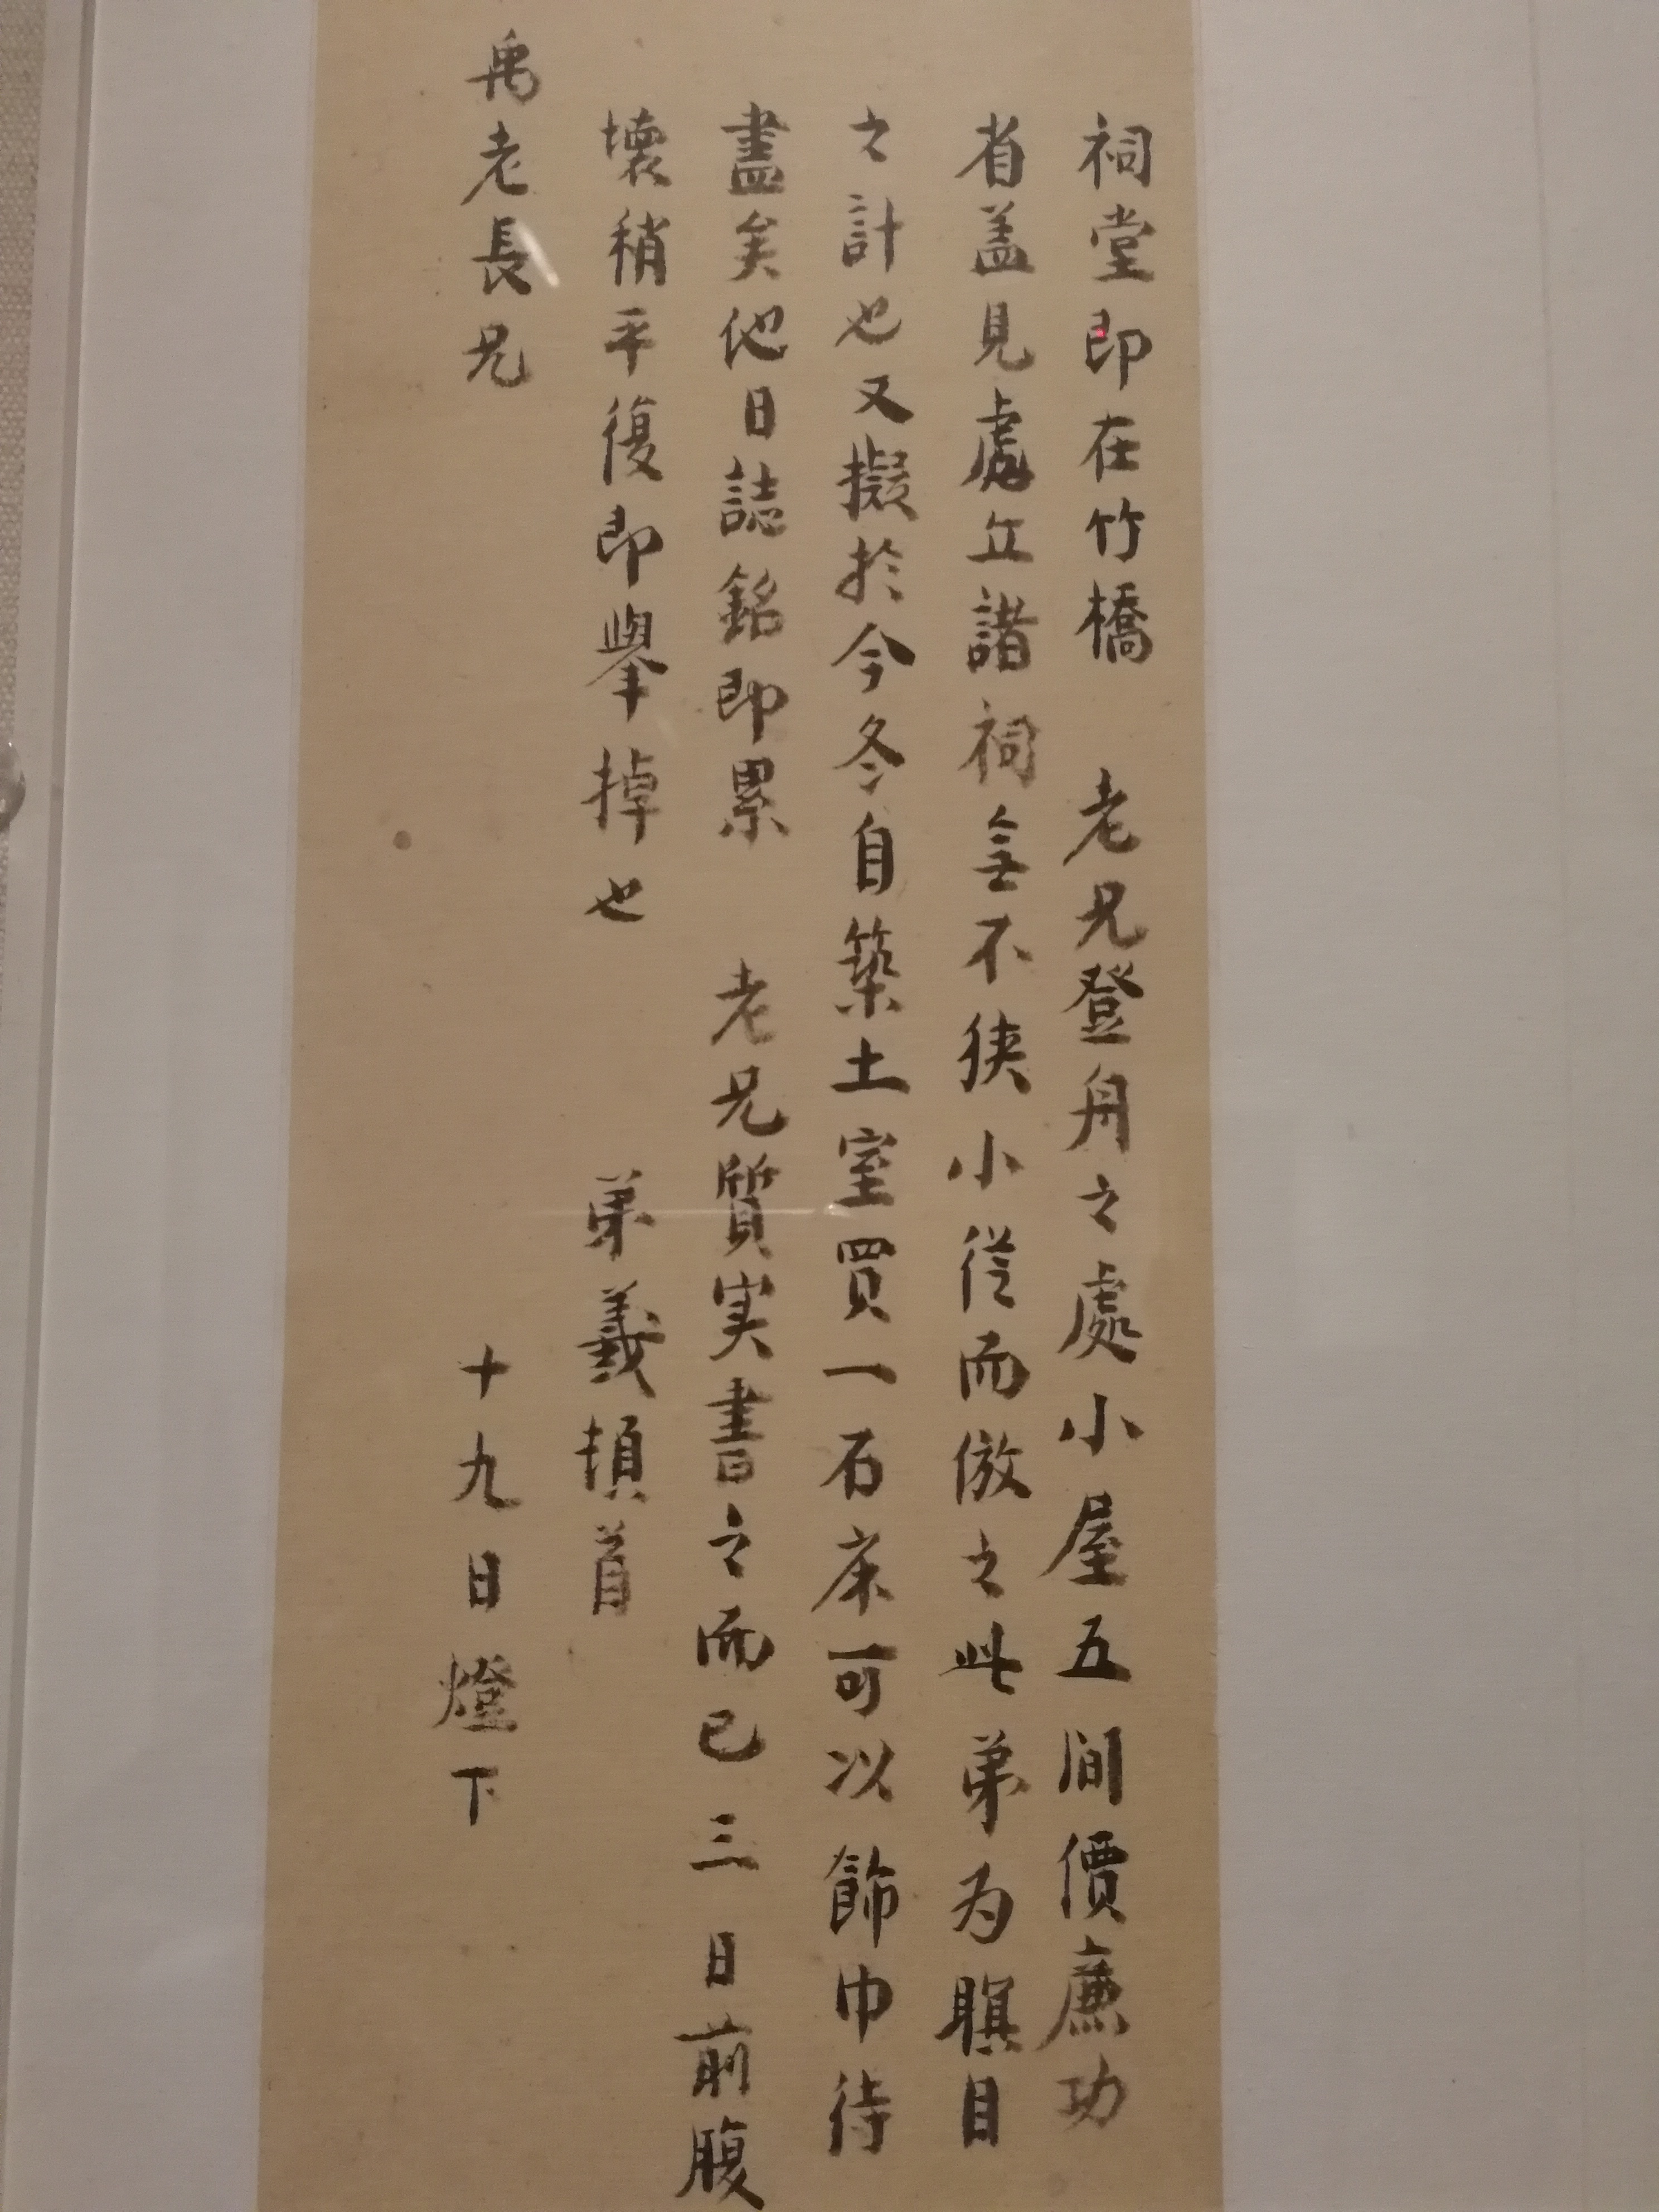 祠堂即在竹橋　老兄登舟之處小屋五間價廉功
省盖見處立諸祠無不狹小從而倣之此弟为瞑目
之計也又擬於今冬自築土室買一石床可以飾巾待
盡矣他日誌銘即累　老兄質实書之而已三日前腹
壞稍平復即舉掉也　弟羲頓首
禹老長兄　十九日燈下